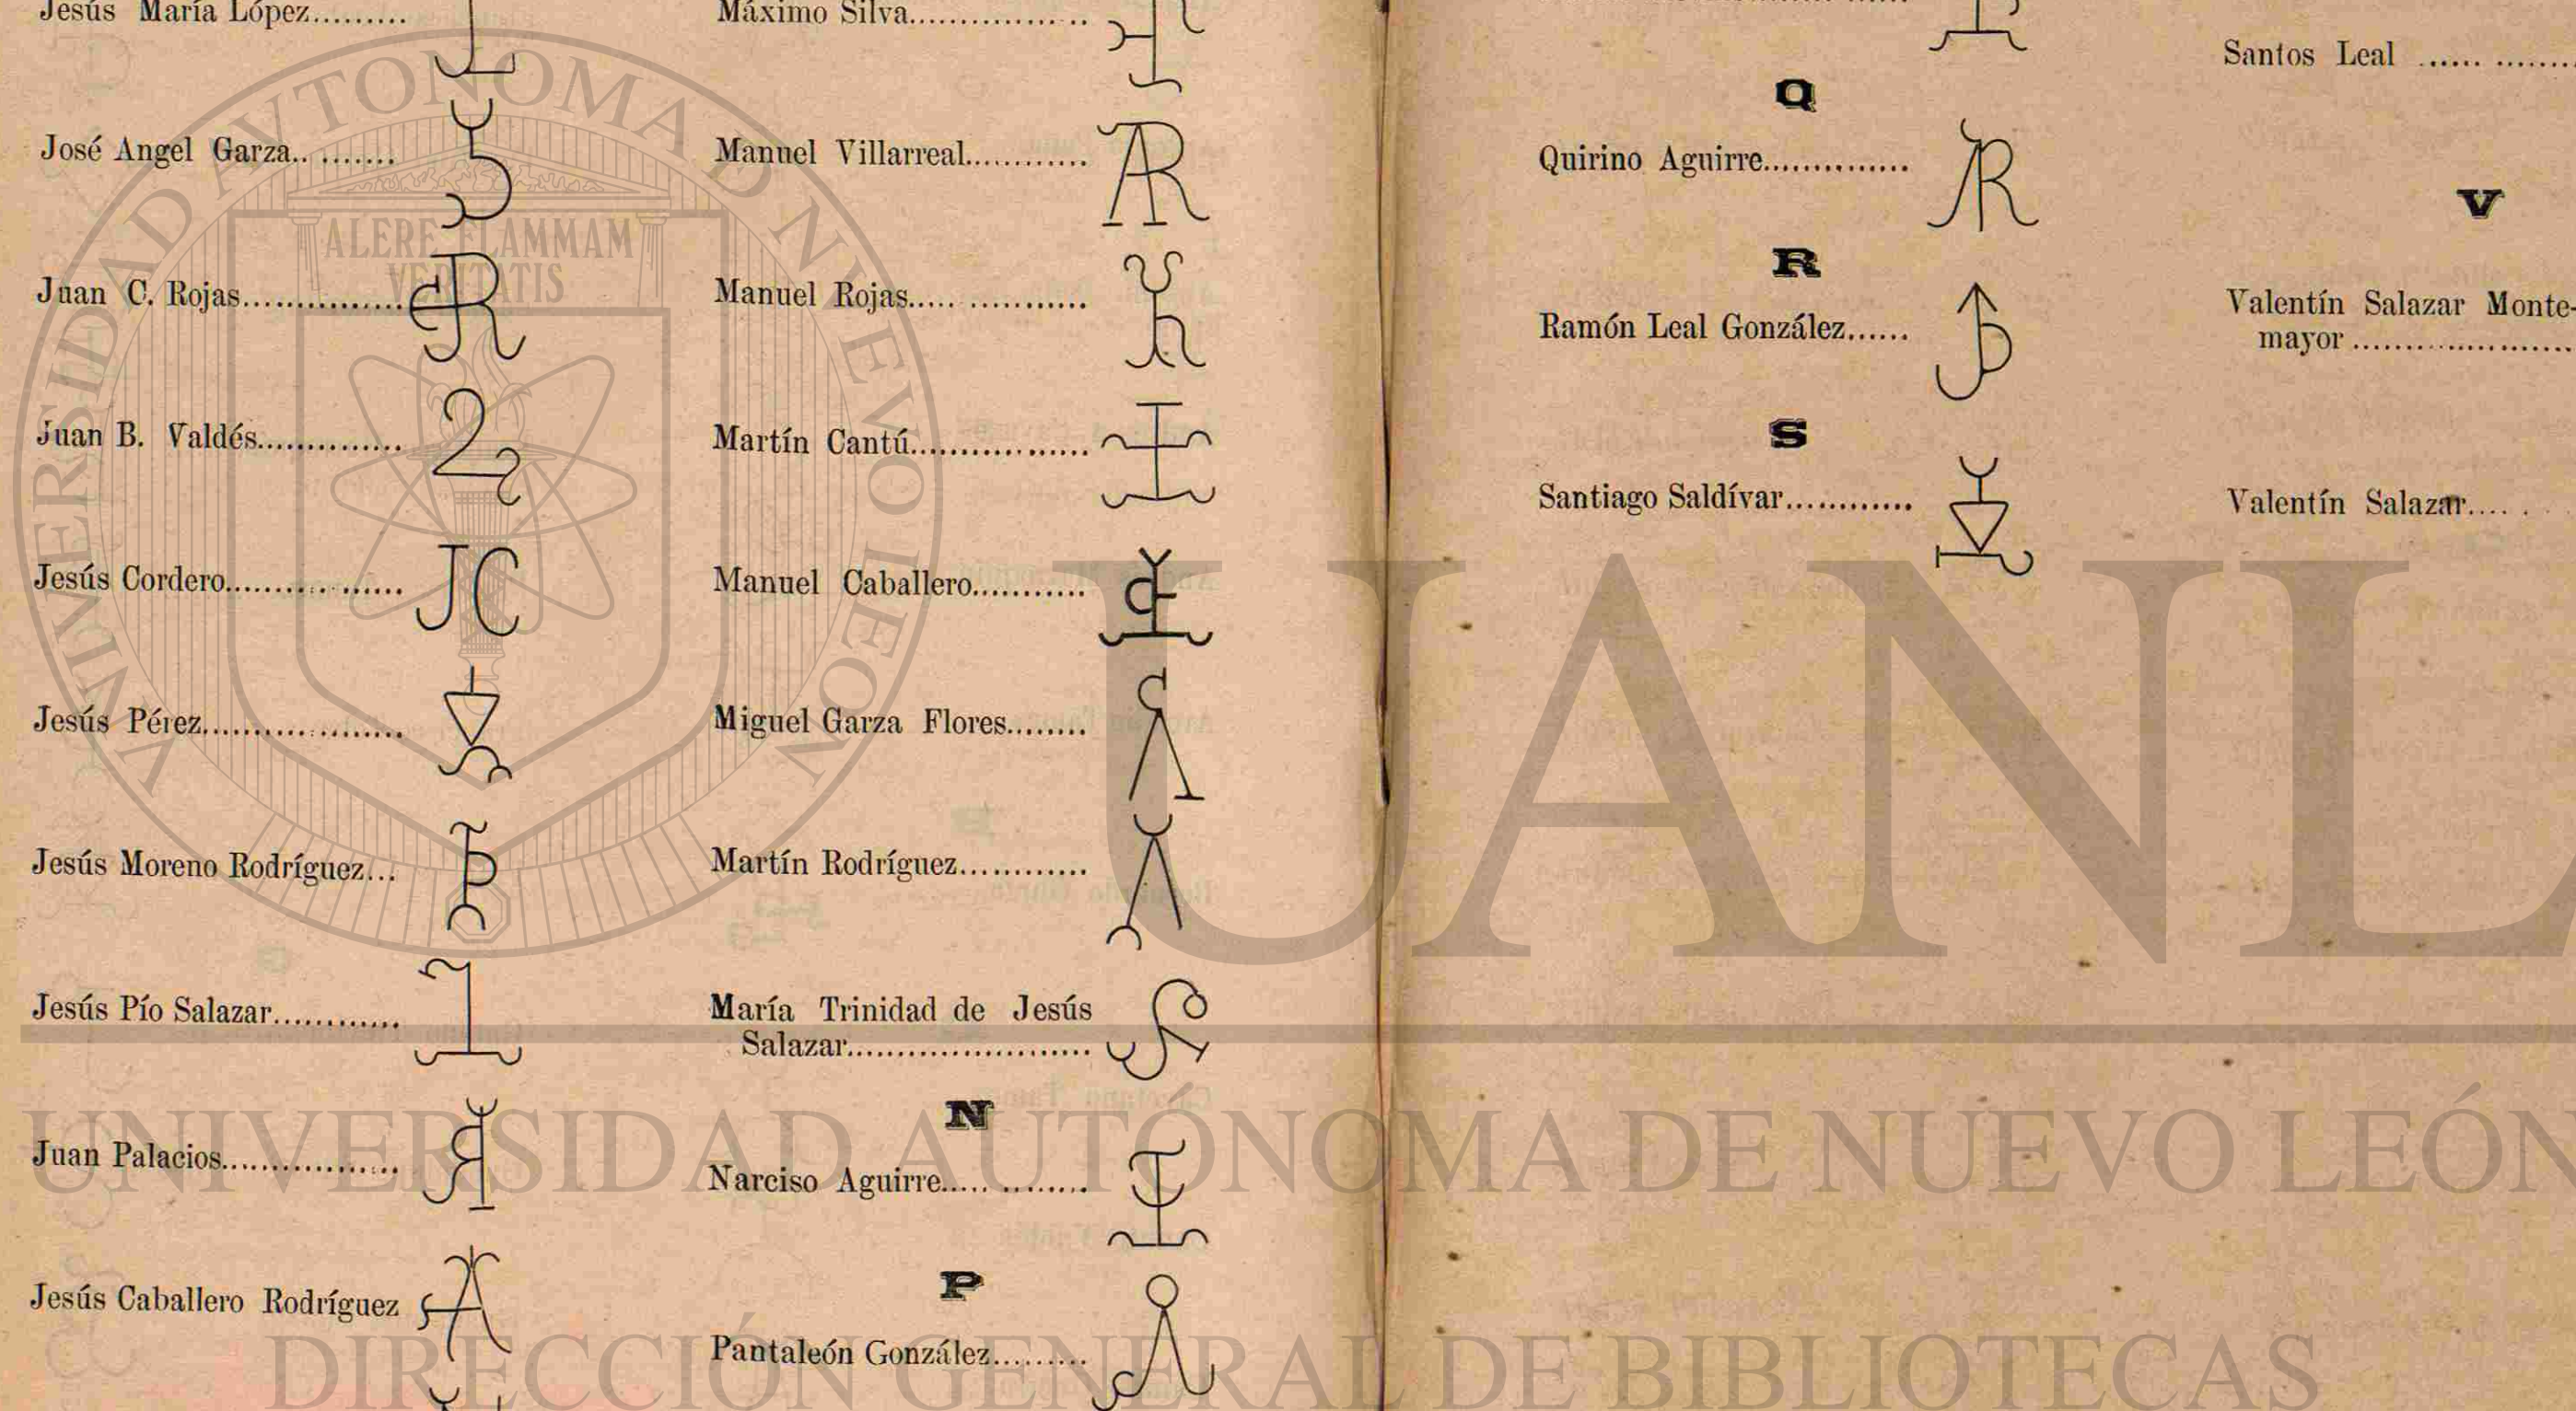 Jesús María López.........
José Angel Garza.. ........
Juan C. Rojas................
Juan B. Valdés..............
Jesús Cordero.................
JC
Jesús Pérez....................
Jesús Moreno Rodríguez...
Jesús Pío Salazar............
Juan Palacios.................
Jesús Caballero Rodríguez
Máximo Silva.................
Manuel Villarreal............
Manuel Rojas..... ............
Martín Cantú.................
Manuel Caballero...........
Miguel Garza Flores........
Martín Rodríguez............
María Trinidad de Jesús
Salazar.......................
N
Narciso Aguirre..... .........
P
Pantaleón González.........
Q
Quirino Aguirre..............
R
Ramón Leal González......
S
Santiago Saldívar............
Santos Leal ...... ........
V
Valentín Salazar Monte-
mayor ......................
Valentín Salazar.... .
UNIVERSIDAD AVTONOMA D NVEVO LEON
ALERE FLAMMAM
VERITATIS
UANL
UNIVERSIDAD AUTÓNOMA DE NUEVO LEÓN
DIRECCIÓN GENERAL DE BIBLIOTECAS